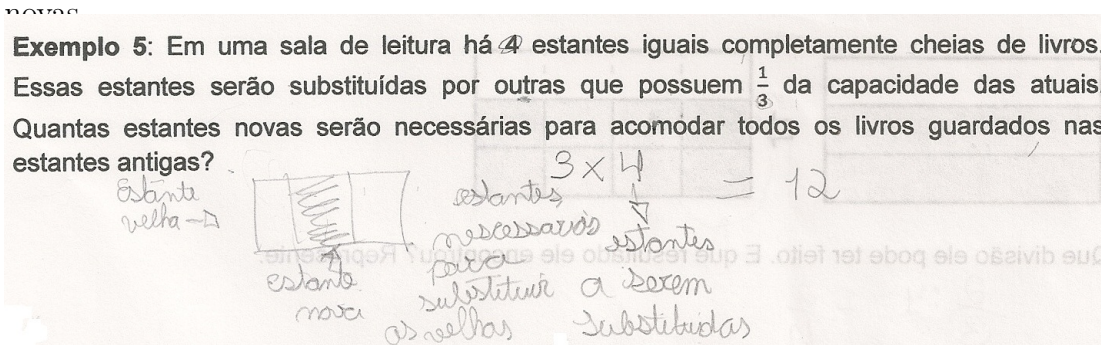 novas
Exemplo 5: Em uma sala de leitura há 4 estantes iguais completamente cheias de livros.
Essas estantes serão substituídas por outras que possuem 1/3 da capacidade das atuais.
Quantas estantes novas serão necessárias para acomodar todos os livros guardados nas
estantes antigas?
3 x 4 = 12
Estante
velha
estante
nova
estantes
nescessarios
para
substituir
as velhas
estantes
a serem
substituidas
Que divisão ele pode ter feito. E que resultado ele encontrou? Represente.